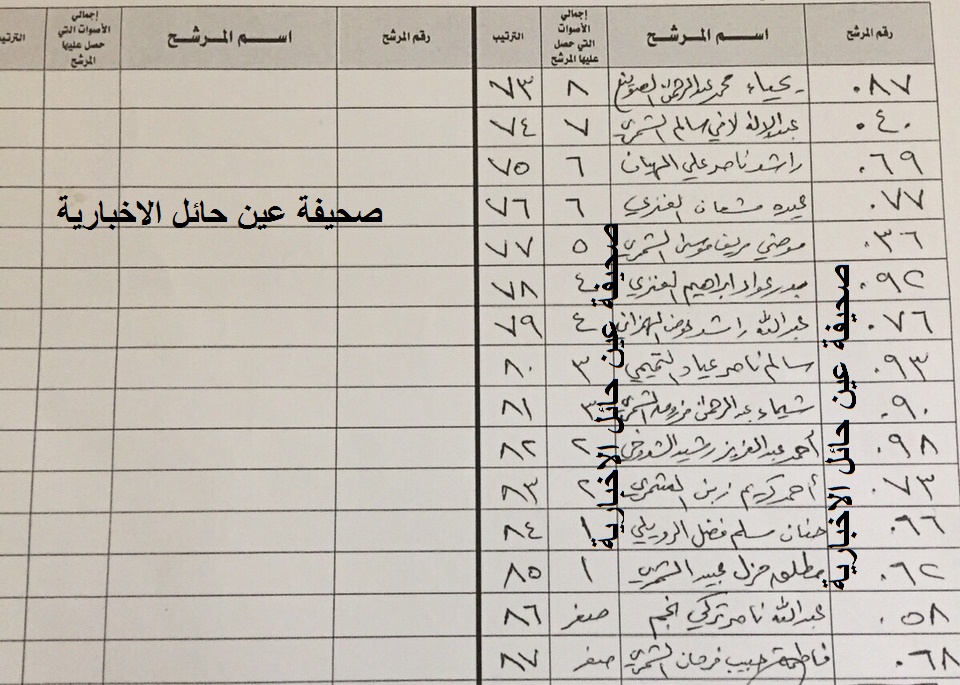 رقم المرشح اسـم المرشـح إجمالي الأصوات التي حصل عليها المرشح الترتيب رقم المرشح اسـم المرشـح إجمالي الأصوات التي حصل عليها المرشح
٠٨٧ يحياء محمد عبدالرحمن ٨ ٧٣
٠٤٠ عبدالإله لافي سالم الشمري ٧ ٧٤
٠٦٩ راشد ناصر علي ٦ ٧٥
٠٧٧ عيده مشعان العنزي ٦ ٧٦
صحيفة عين حائل الاخبارية
٠٣٦ موضي الشمري ٥ ٧٧
٠٩٢ بدر عواد ابراهيم العنزي ٤ ٧٨
٠٧٦ عبدالله راشد عوض الزهراني ٤ ٧٩
٠٩٣ سالم ناصر عياد التميمي ٣ ٨٠
٠٩٠ شيماء عبدالرحمن الشمري ٣ ٨١
٠٩٨ أحمد عبدالعزيز رشيد ٢ ٨٢
٠٧٣ أحمد كريم زبن الشمري ٢ ٨٣
٠٩٦ حنان سلم فضل الرويلي ١ ٨٤
٠٦٢ مطلق عبيد الشمري ١ ٨٥
٠٥٨ عبدالله ناصر تركي صفر ٨٦
٠٦٨ فاطمة حبيب فرحان الشمري صفر ٨٧
صحيفة عين حائل الاخبارية
صحيفة عين حائل الاخبارية